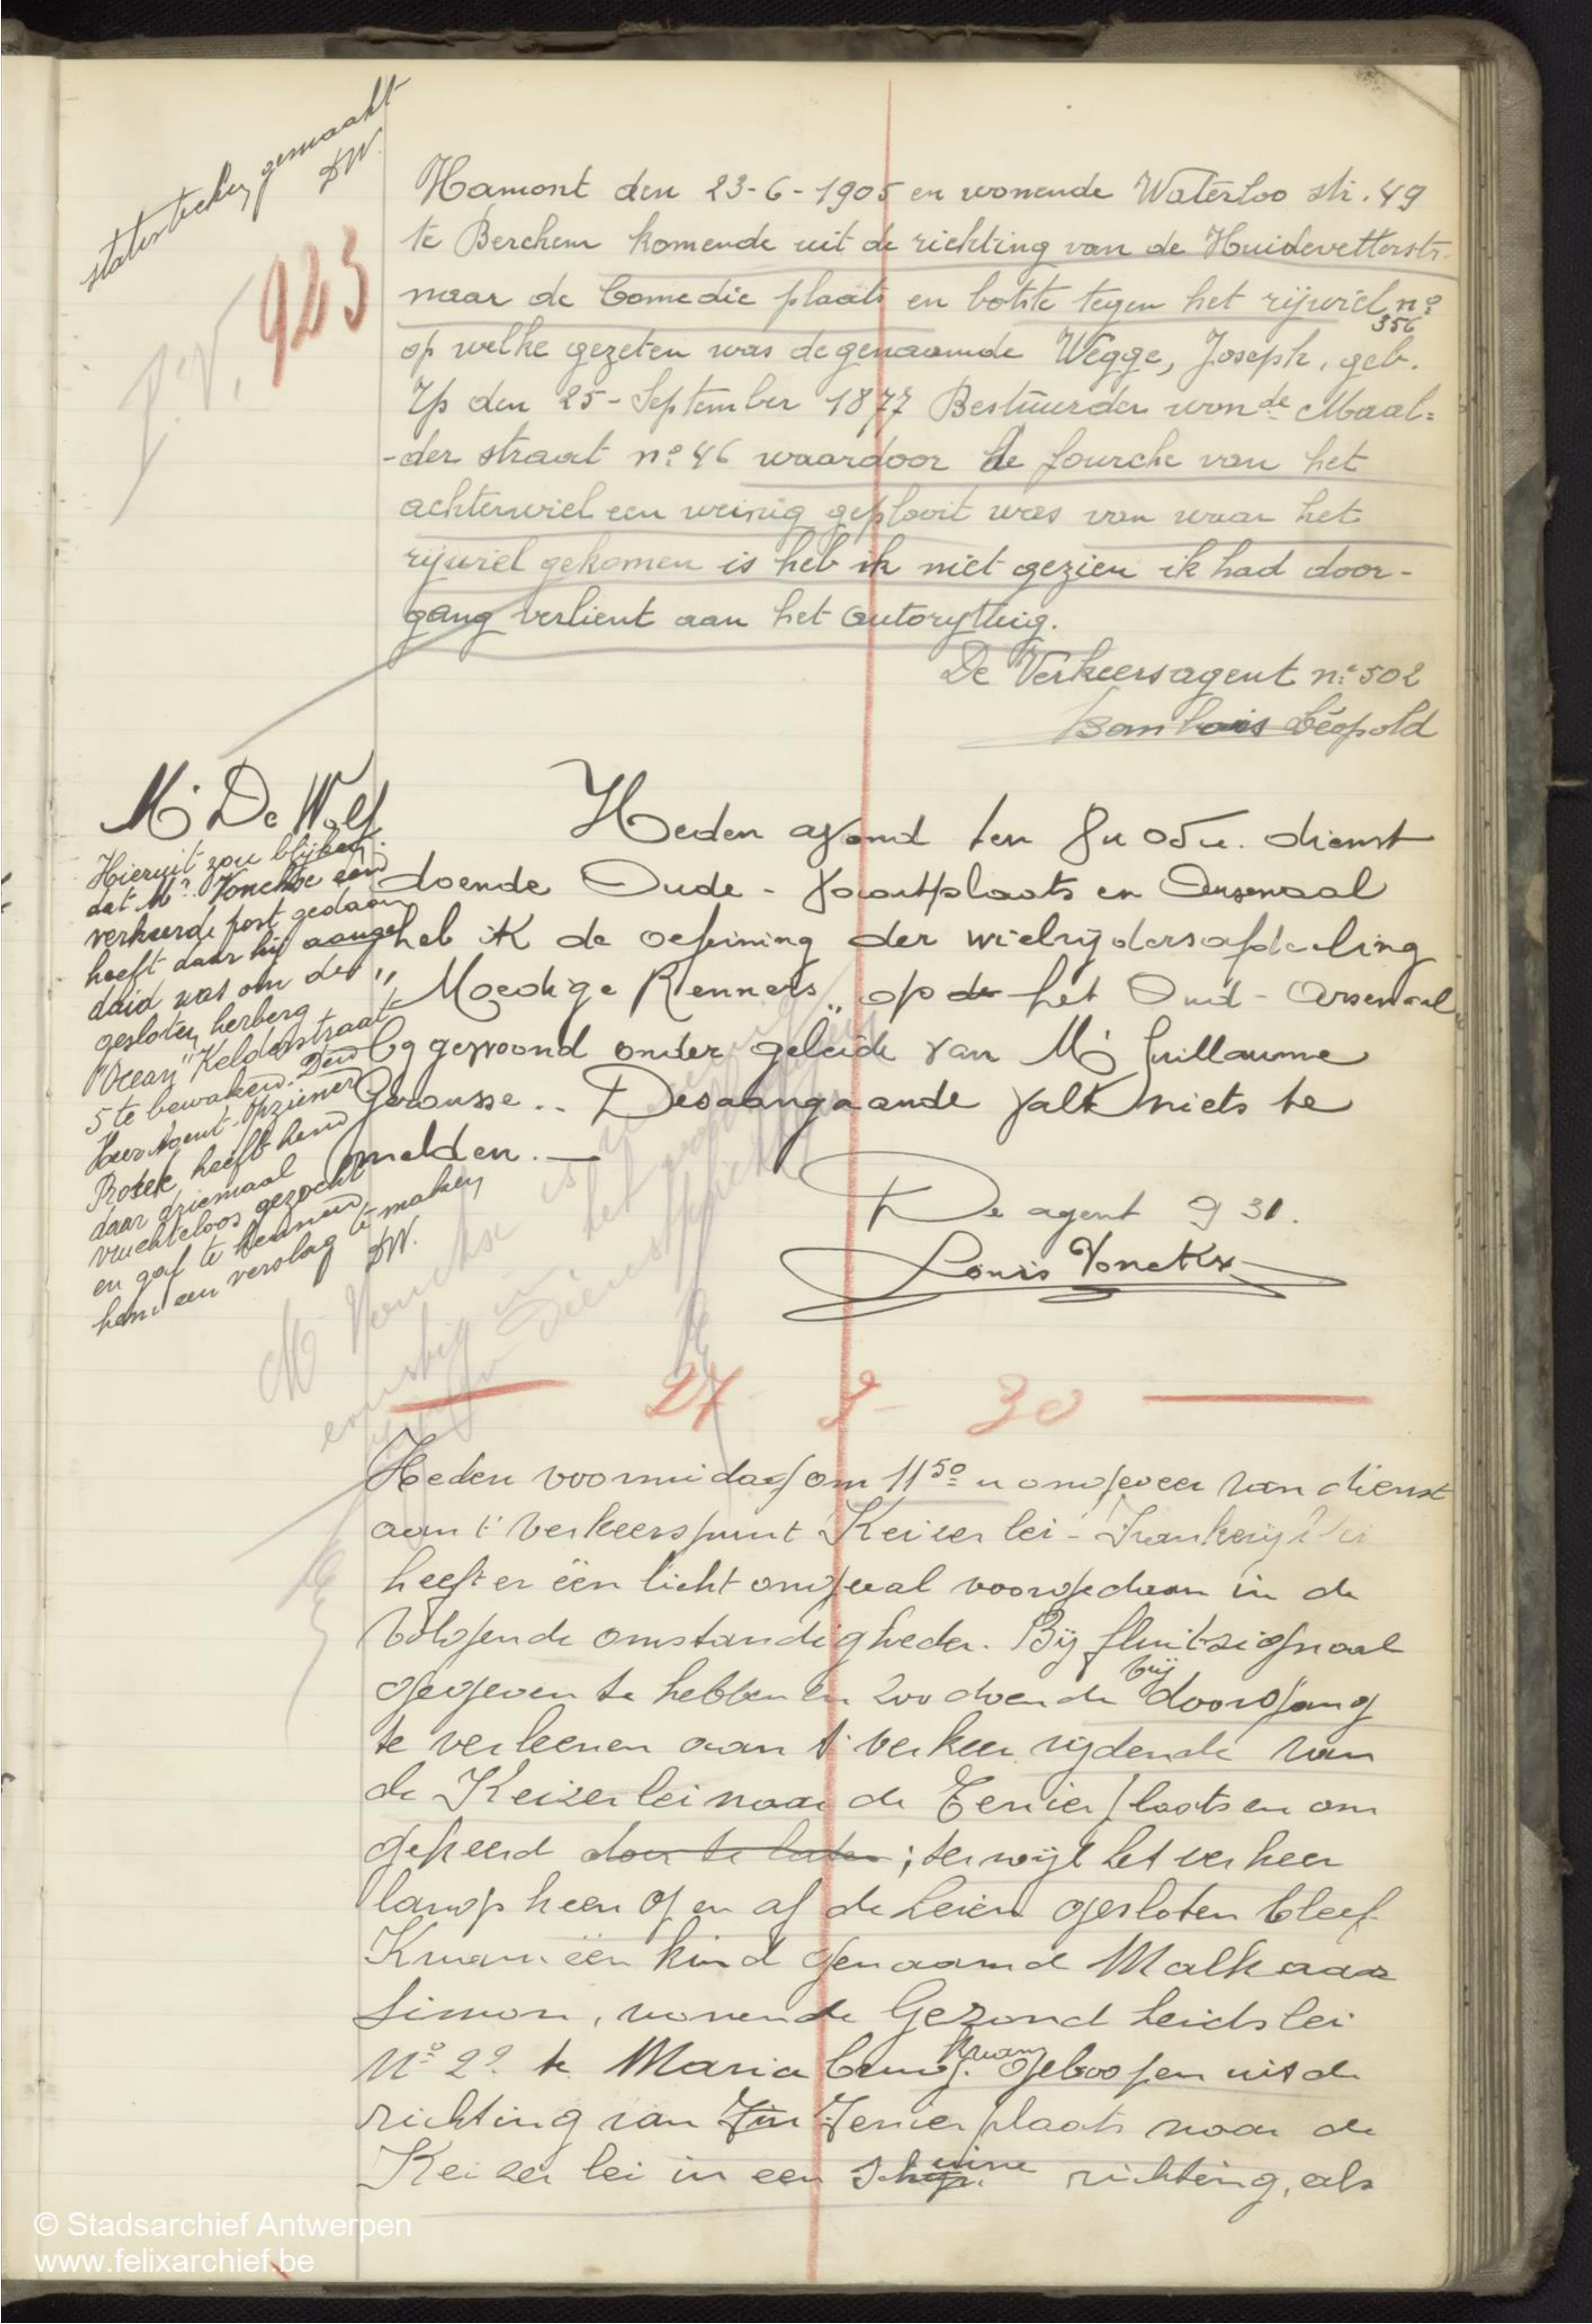 statistieken gemaakt
DW.
P.V. 923
Hamont den 23-6-1905 en wonende Waterloo str. 49
te Berchem komende uit de richting van de Huidevetterstr.
naar de Comedie plaats en botste tegen het rijwiel nº
356
op welke gezeten was de genaamde Wegge, Joseph, geb.
den 25-September 1877 Bestuurder won^de Maal=
-der straat nº 46 waardoor de fourche van het
achterwiel een weinig geplooit was van waar het
rijwiel gekomen is heb ik niet gezien ik had door-
gang verlient aan het autorytuig.
De Verkeersagent nº 502
Léopold
Mr De Wolf
Hieruit zou blijken
dat Mr. Vonckse een
verkeerde post gedaan
heeft daar hij aange-
duid was om de
gesloten herberg
"Ocean" Kelderstraat
5 te bewaken. Den
Heer Agent-Opziener
heeft hem
daar driemaal
vruchteloos gezocht
en gaf te kennen
hem een verslag te maken
DW.
Heden avond ten 8u 05u. dienst
doende Oude - Vaartplaats en Arsenaal
heb ik de oefening der wielrijdersafdeeling
"Moedige Renners" op de het Oud-Arsenaal
bygewoond onder geleide van Mr Guillaume
Desaangaande valt niets te
melden. —
De agent 931.
Louis Vonckx
Mr Vonckse is
het
27 - 30
Heden voormidag om 11 50 u ongeveer van dienst
aan t' verkeerspunt Keizer lei - Frankrijk lei
heeft er één licht ongeval voorgedaan in de
volgende omstandigheden. Bij fluitsignaal
gegeven te hebben en zoo doende vrij doorgang
te verleenen aan t' verkeer rijdende van
de Keizer lei naar de Tenier plaats en om
gekeerd door te laten; terwijl het verkeer
langs heen op en af de Leien gesloten bleef
Kwam één kind genaamd Malkaar
Simon, wonende Gezondheids lei
Nº 29. te Maria Burg. kwam geloopen uit de
richting van Tenier plaats naar de
Keizer lei in een schuine richting, als
© Stadsarchief Antwerpen
www.felixarchief.be